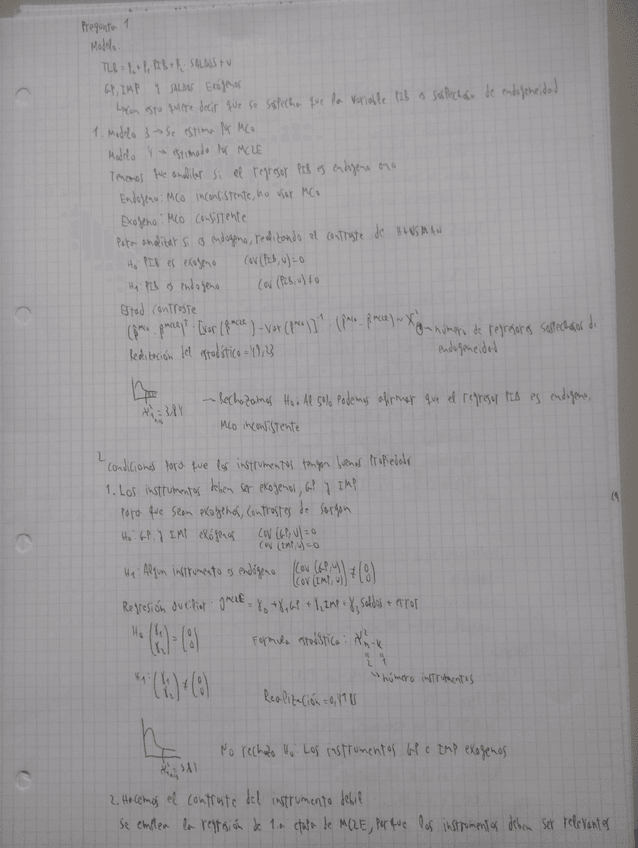 Pregunta 1
Modelo:
TLB = β₀ + β₁ PIB + β₂ SALDOS + u
GP, IMP y SALDOS Exógenos
esto quiere decir que se sospecha que la variable PIB es sospechosa de endogeneidad
1. Modelo 3 → Se estima por MCO
Modelo 4 → estimado por MCLE
Tenemos que analizar si el regresor PIB es endógeno o no
Endógeno: MCO inconsistente, no usar MCO
Exógeno: MCO consistente
Para analizar si es endógeno, realizando el contraste de HAUSMAN
H₀ PIB es exógeno Cov(PIB,u)=0
H₁ PIB es endógeno Cov(PIB,u)≠0
Estad contraste
(β^MCO - β^MCLE)' · [Var(β^MCLE) - Var(β^MCO)]⁻¹ · (β^MCO - β^MCLE) ~ χ² → número de regresores sospechosos de
endogeneidad
Realización del estadístico = 49,23
χ²₁ = 3,84 → Rechazamos H₀. Al 5% podemos afirmar que el regresor PIB es endógeno,
MCO inconsistente
2 Condiciones para que los instrumentos tengan buenas propiedades
1. Los instrumentos deben ser exógenos, GP y IMP
Para que sean exógenos, contrastes de Sargan
H₀: GP, y IMP exógenos Cov(GP,u)=0
Cov(IMP,u)=0
H₁: Algún instrumento es endógeno (Cov(GP,u) Cov(IMP,u)) ≠ (0 0)
Regresión auxiliar û^MCLE = γ₀ + γ₁GP + γ₂IMP + γ₃Saldos + error
H₀ (γ₁ γ₂) = (0 0) Formula estadístico: χ²
H₁: (γ₁ γ₂) ≠ (0 0) número instrumentos
Realización =
No rechazo H₀. Los instrumentos GP e IMP exógenos
2. Hacemos el contraste del instrumento débil
Se emplea la regresión de 1.a etapa de MCLE, porque los instrumentos deben ser relevantes